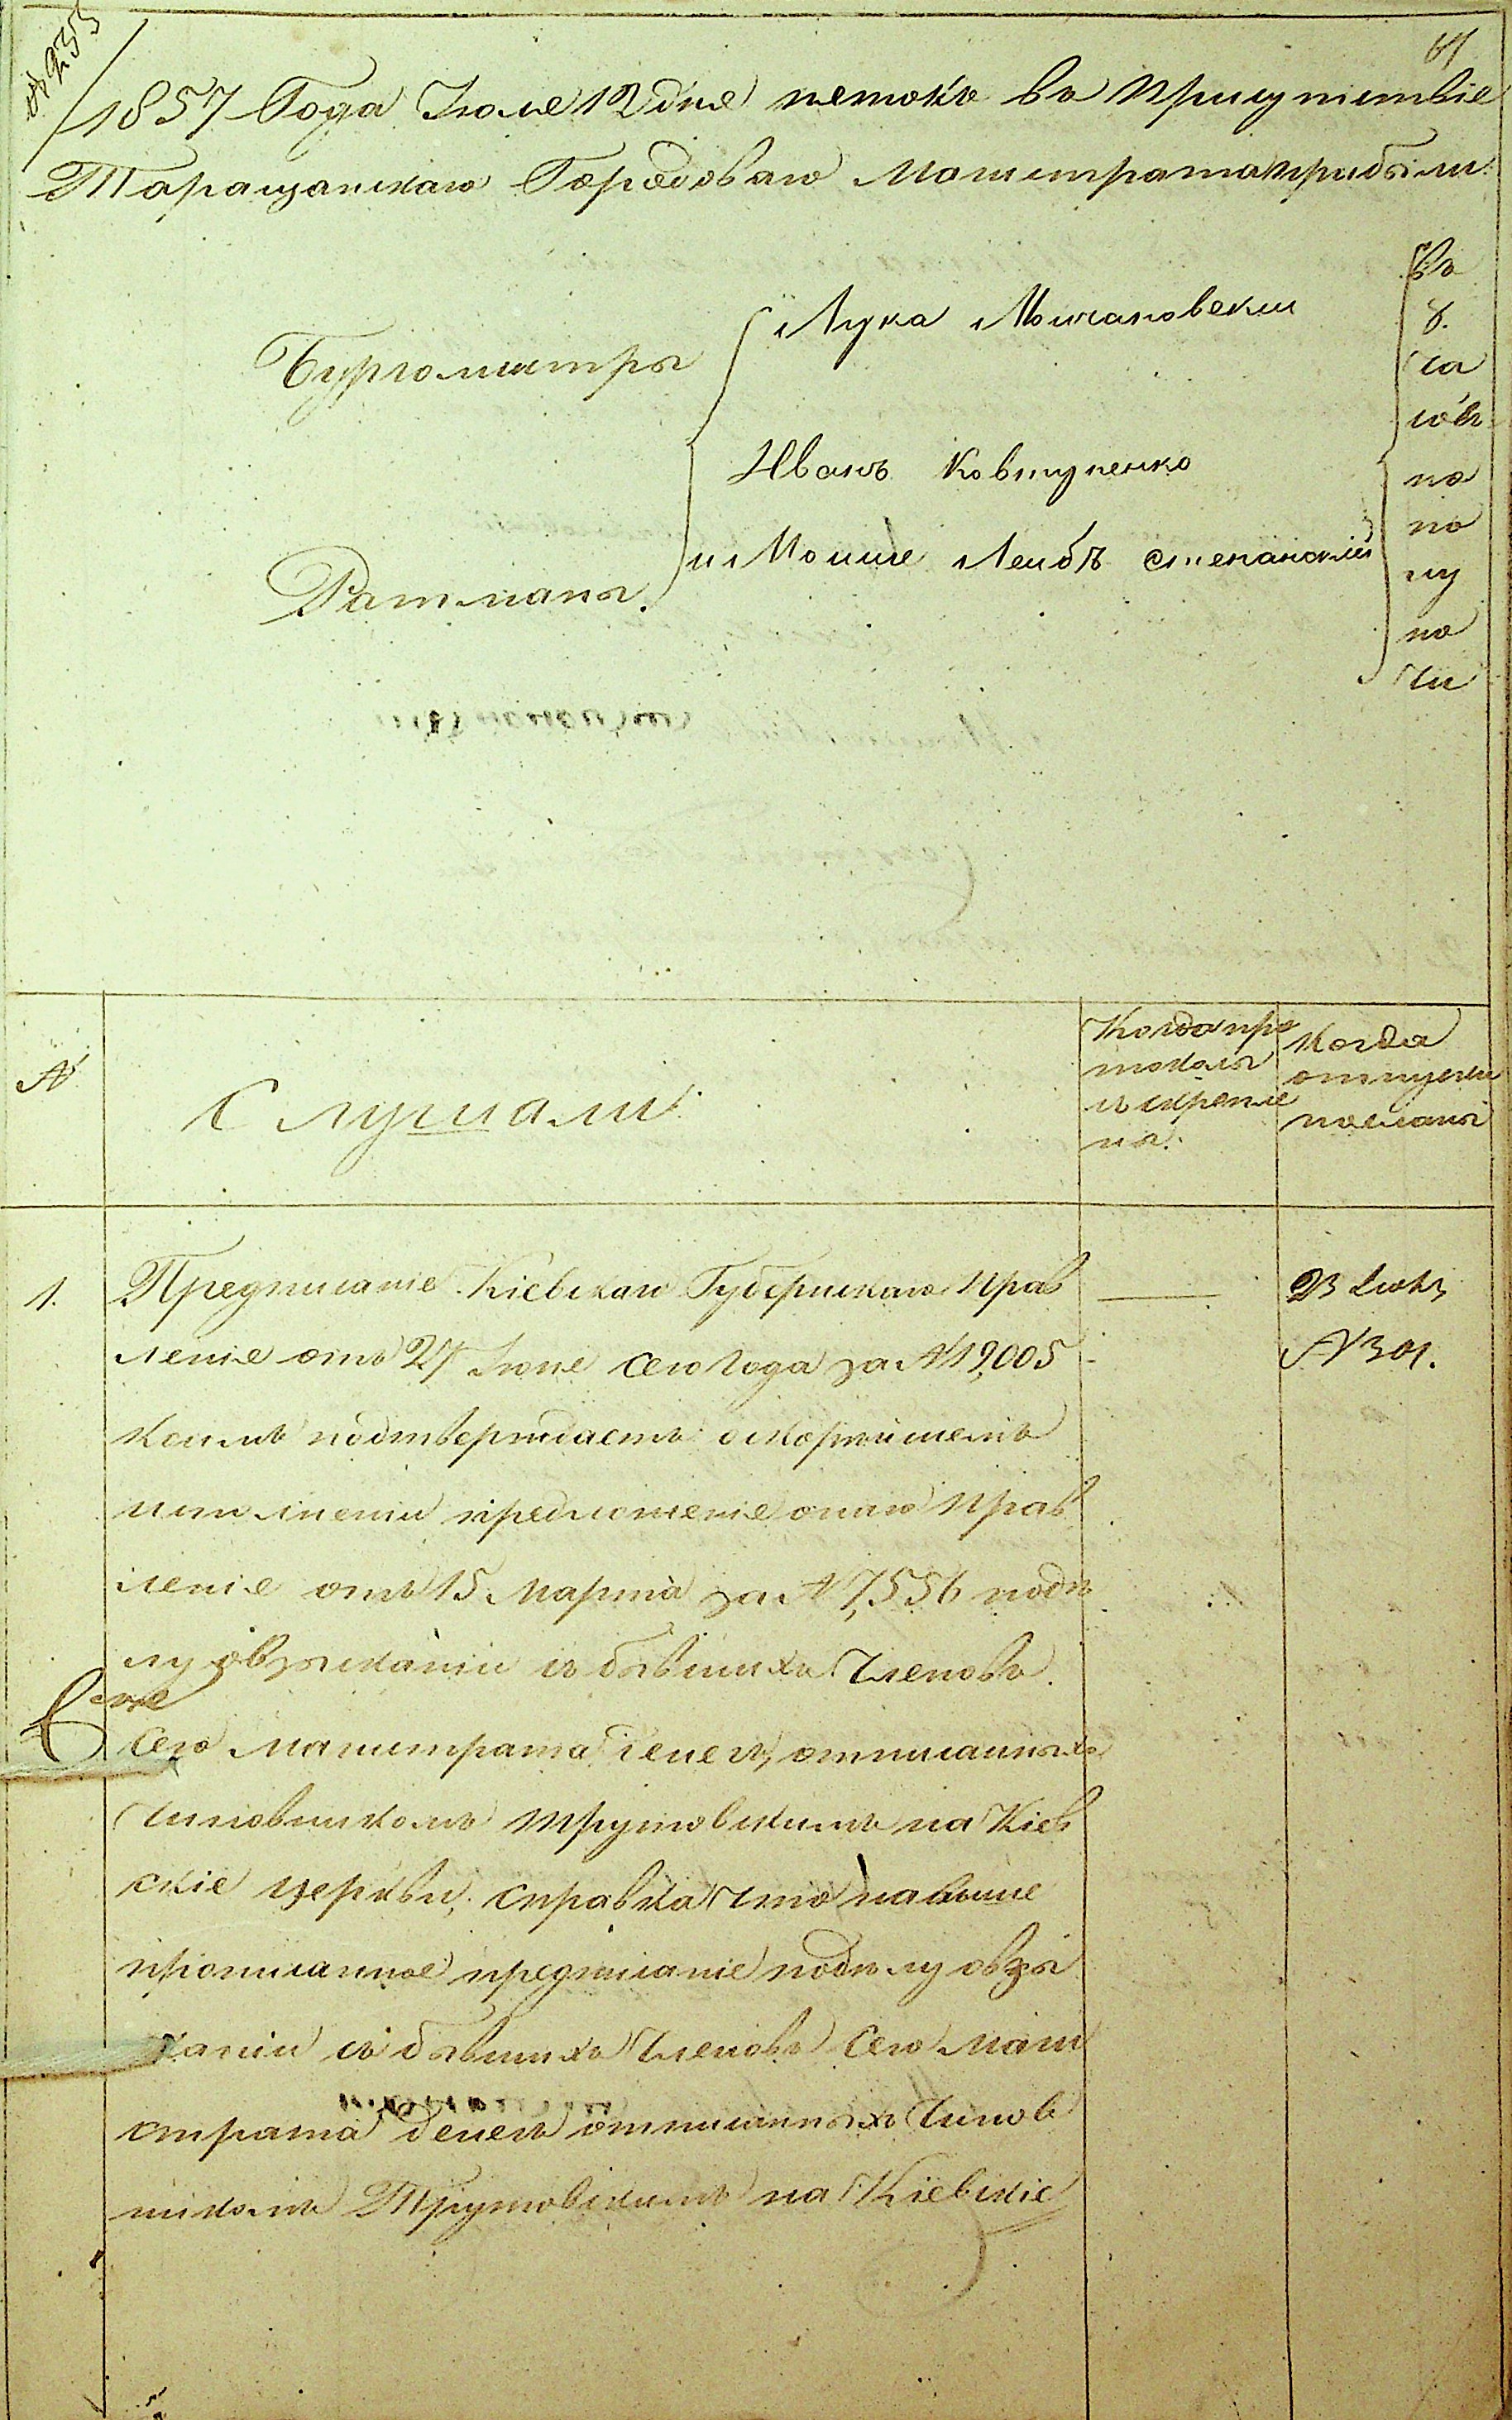 № 233
61
1857 Года Июля 12 дня петокъ въ присутствіе
Таращанскаго Городоваго Магистрата прибыли:
Бургомистры
Лука
Иванъ Ковтуненко
Ратманы.
и Мошко Лейбъ
въ
8.
ча
совъ
по
по
лу
но
чи
№
Слушали:
Когда про
токолъ
и скрепле
на.
Когда
отпуски
посланы
1.
Предписаніе Кіевскаго Губернскаго Прав
ленія отъ 27 Июня сего года за № 19,005
коимъ подтверждаетъ о скорейшемъ
исполнении предложеніе онаго Прав
ленія отъ 15 Марта за № 7,556 поделу
о взысканіи съ бывшихъ Членовъ
сего Магистрата денегъ, отписанныхъ
Чиновникомъ Трутовскимъ на Кіев
скіе церкви; справка что навыше
прописанное предписаніе поделу о взы
сканіи съ бывшихъ Членовъ сего Маги
страта денегъ отписанныхъ Чинов
никомъ Трутовскимъ на Кіевскіе
23 Июля
№ 301.